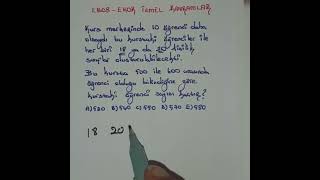 EBOB-EKOK TEMEL KAVRAMLAR
Kurs merkezinde 10 öğrenci daha
olsaydı bu kurstaki öğrenciler ile
her biri 18 ya da 20 kişilik
sınıflar oluşturulabilecekti.
Bu kursta 500 ile 600 arasında
öğrenci olduğu bilindiğine göre
kurstaki öğrenci sayısı kaçtır?
A)520 B)540 C)550 D)570 E)580
18 20